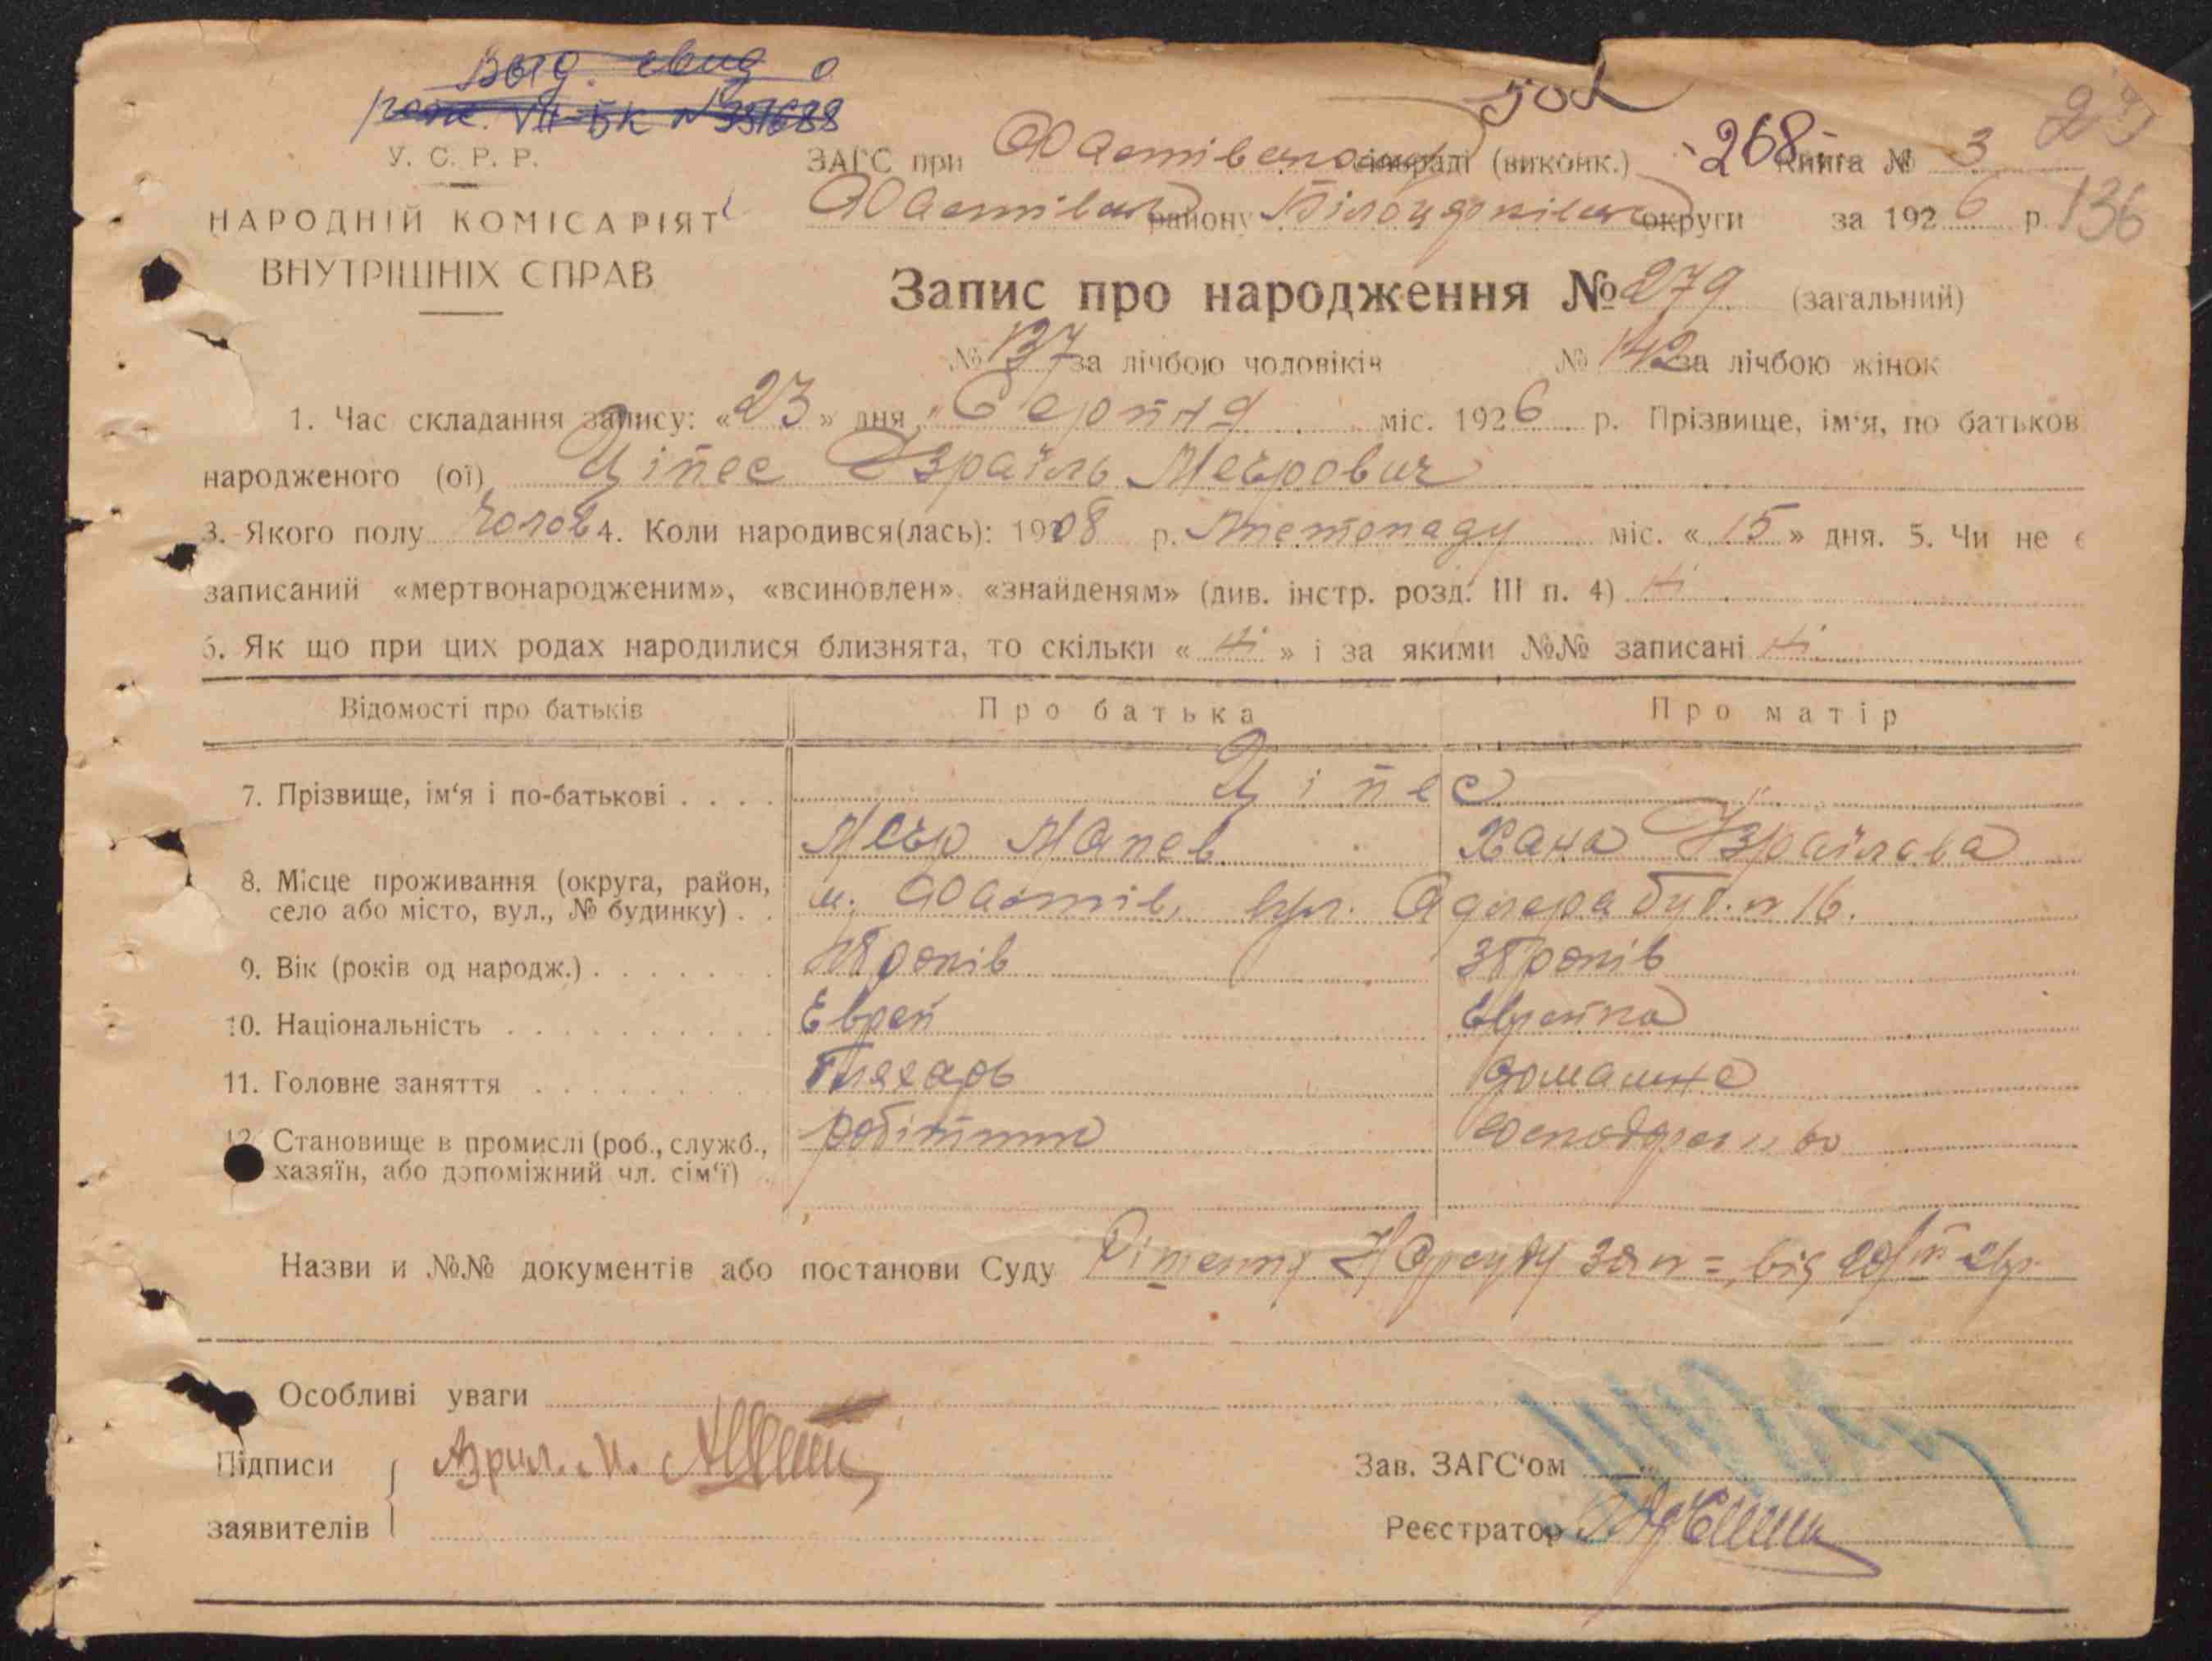 Выд. свид о
рож. VII-БК №351688
У. С. Р. Р.
НАРОДНІЙ КОМІСАРІЯТ
ВНУТРІШНІХ СПРАВ
ЗАГС при Фастівському (виконк.) 268 Книга № 3
Фастівськ району Білоцерківськ округи за 1926 р. 136
Запис про народження № 279 (загальний)
№ 137 за лічбою чоловіків № 142 за лічбою жінок
1. Час складання запису: «23» дня „Серпня міс. 1926 р. Прізвище, ім'я, по батьков
народженого (ої) Ціпес Ізраїль Меєрович
3. Якого полу Чолов 4. Коли народився(лась): 1908 р. Листопаду міс. «15» дня. 5. Чи не є
записаний «мертвонародженим», «всиновлен» «знайденям» (див. інстр. розд. III п. 4) Ні
6. Як що при цих родах народилися близнята, то скільки «Ні» і за якими №№ записані Ні
Відомості про батьків Про батька Про матір
7. Прізвище, ім'я і по-батькові . . . . Ціпес
Меєр Хана Ізраїлева
8. Місце проживання (округа, район, село або місто, вул., № будинку) . . м. Фастів, вул. Адлера буд. № 16.
9. Вік (років од народж.) . . . . . . . років 38 років
10. Національність . . . . . . . . . . Еврей Еврейка
11. Головне заняття . . . . . . . . . Бляхарь домашнє
12. Становище в промислі (роб., служб., хазяїн, або допоміжний чл. сім'ї) . робітник господарство
Назви и №№ документів або постанови Суду Рішення Нарсуду від
Особливі уваги
Підписи Азрил. М.
заявителів
Зав. ЗАГС'ом
Реєстратор